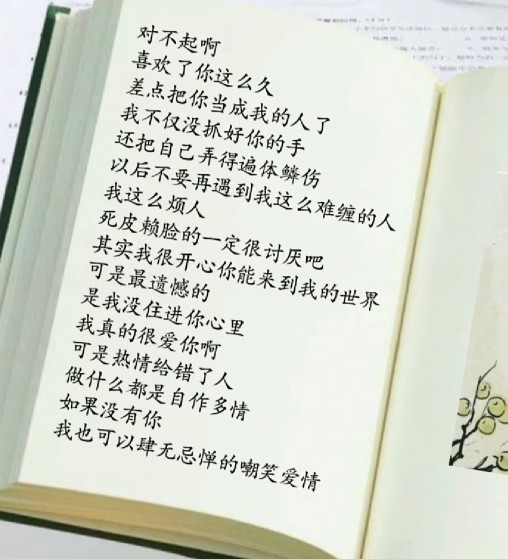 对不起啊
喜欢了你这么久
差点把你当成我的人了
我不仅没抓好你的手
还把自己弄得遍体鳞伤
以后不要再遇到我这么难缠的人
我这么烦人
死皮赖脸的一定很讨厌吧
其实我很开心你能来到我的世界
可是最遗憾的
是我没住进你心里
我真的很爱你啊
可是热情给错了人
做什么都是自作多情
如果没有你
我也可以肆无忌惮的嘲笑爱情